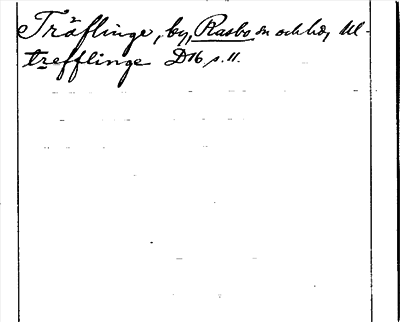 Träflinge, by, Rasbo sn och hd, Ul-
trefflinge D16 s. 11.